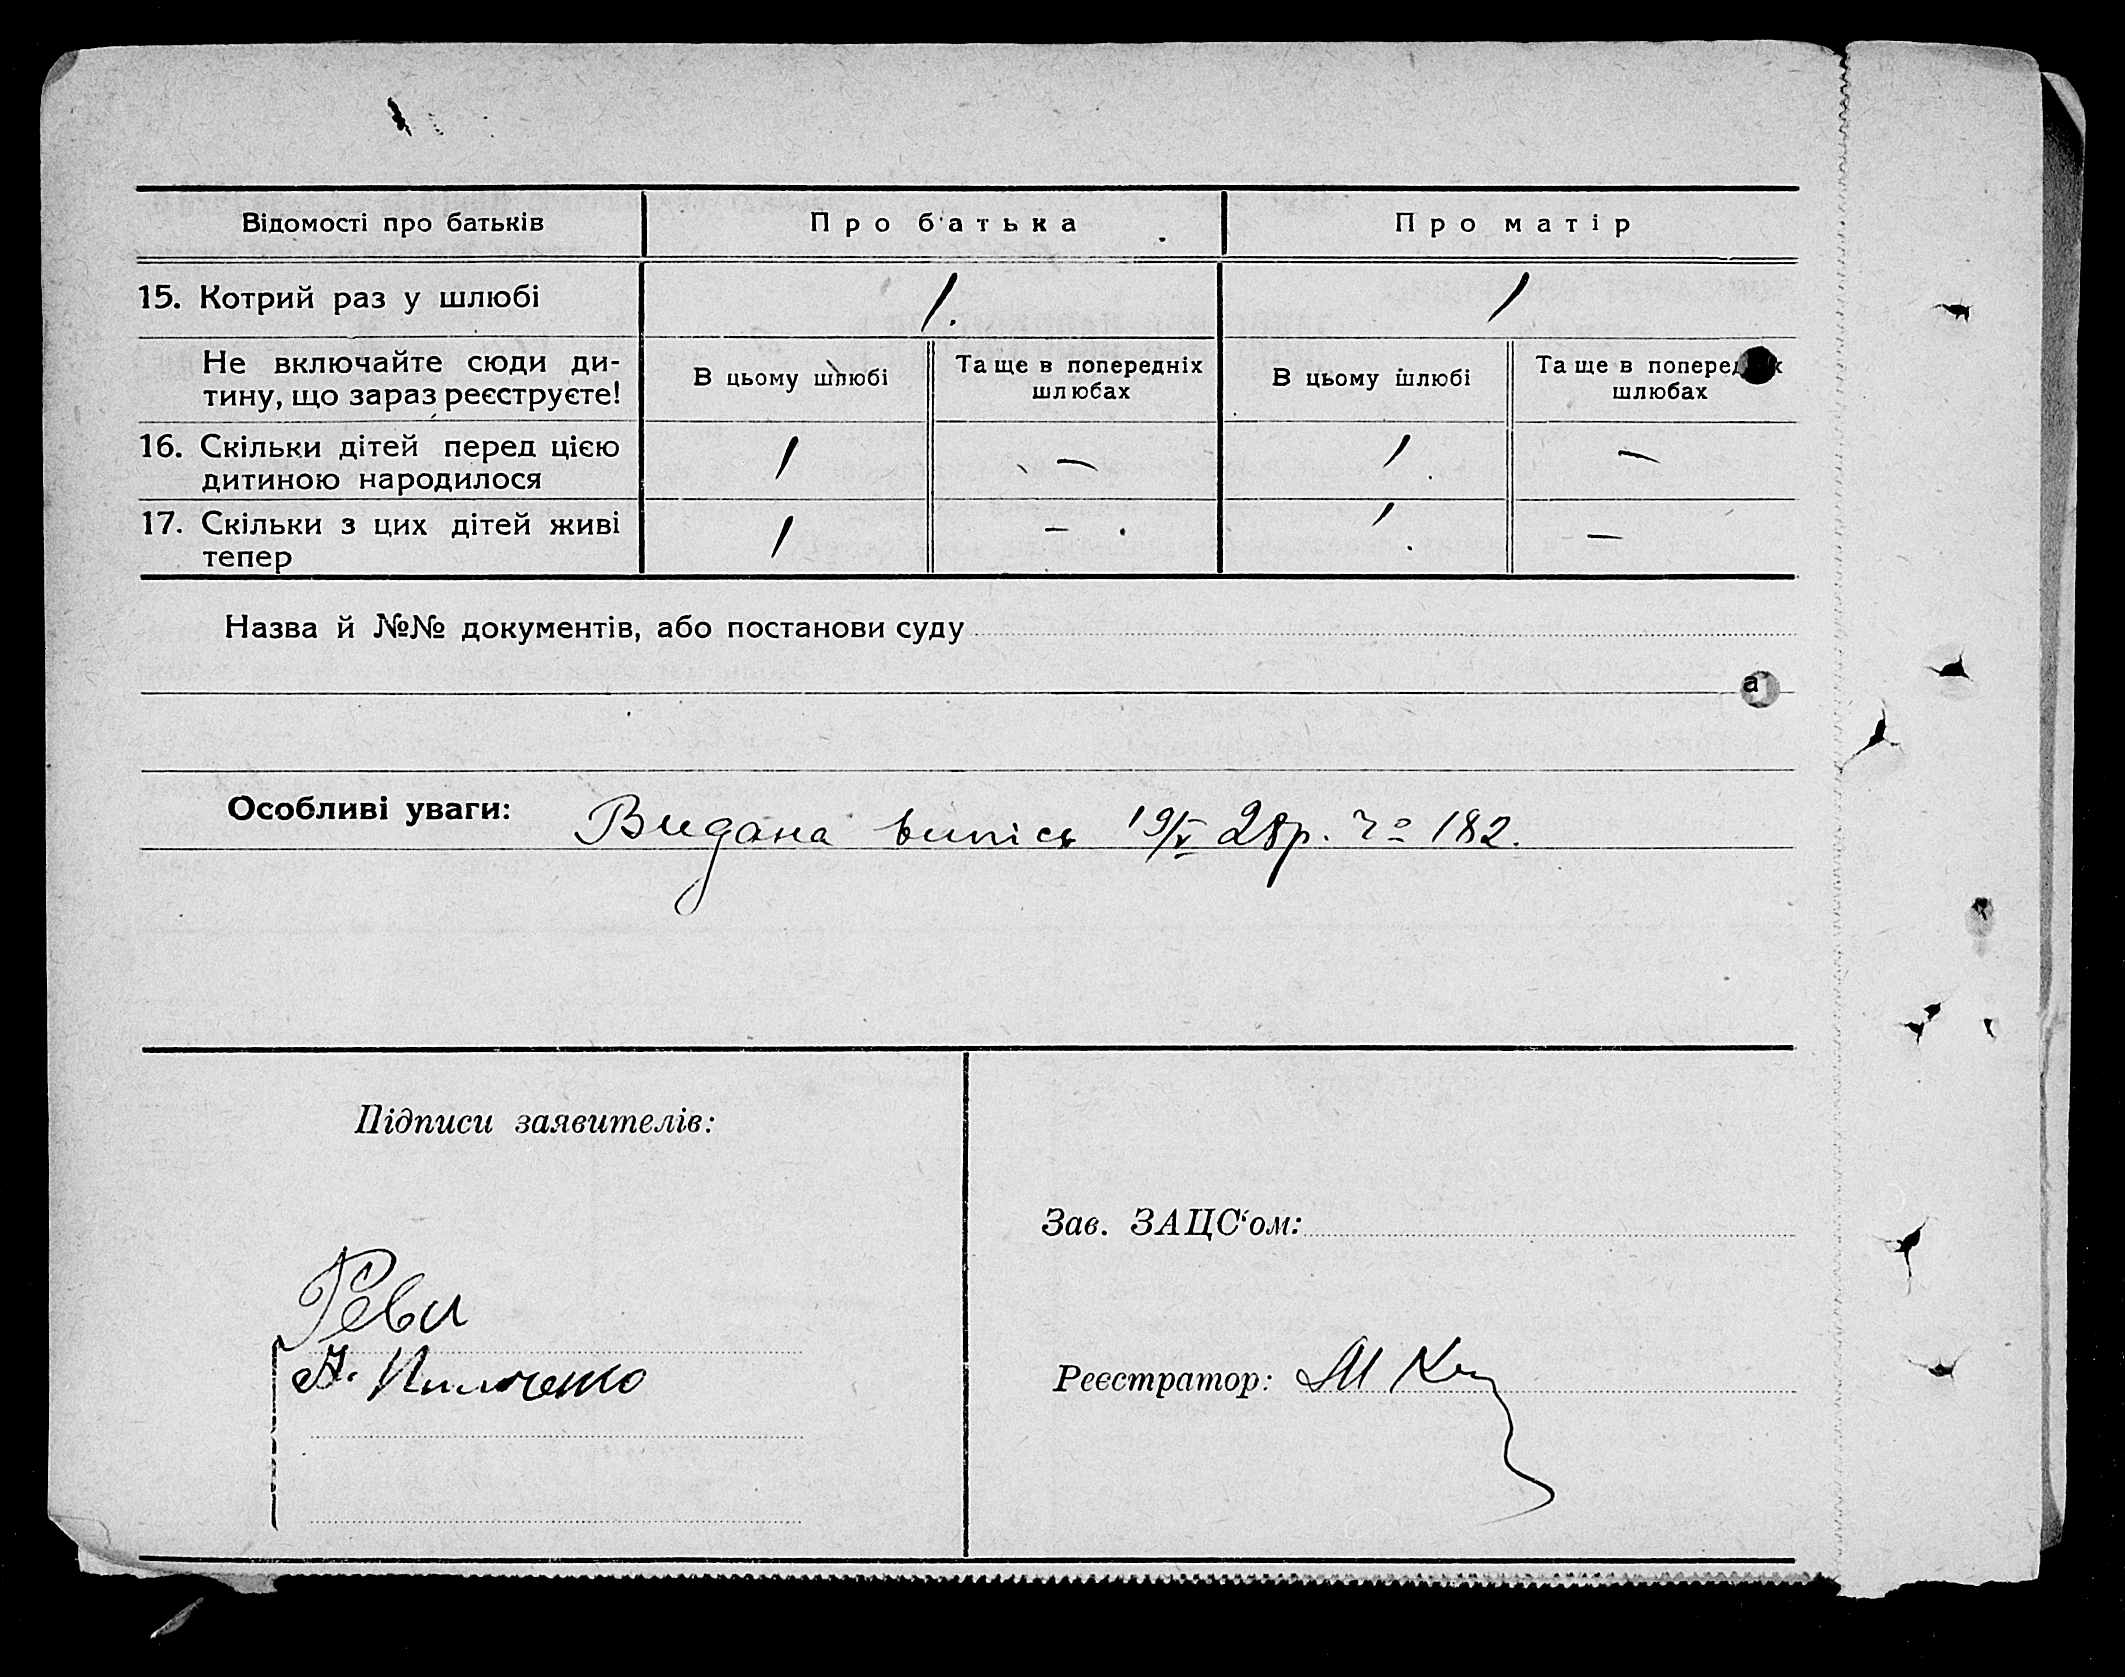 Відомості про батьків Про батька Про матір
15. Котрий раз у шлюбі 1. 1
Не включайте сюди ди-
тину, що зараз реєструєте!
В цьому шлюбі
Та ще в попередніх
шлюбах
В цьому шлюбі
Та ще в попередніх
шлюбах
16. Скільки дітей перед цією
дитиною народилося
1 — 1 —
17. Скільки з цих дітей живі
тепер
1 — 1 —
Назва й №№ документів, або постанови суду
а
Особливі уваги: Видана випісь 19/V 28р. 182.
Підписи заявителів:
Зав. ЗАЦС'ом:
Реєстратор: